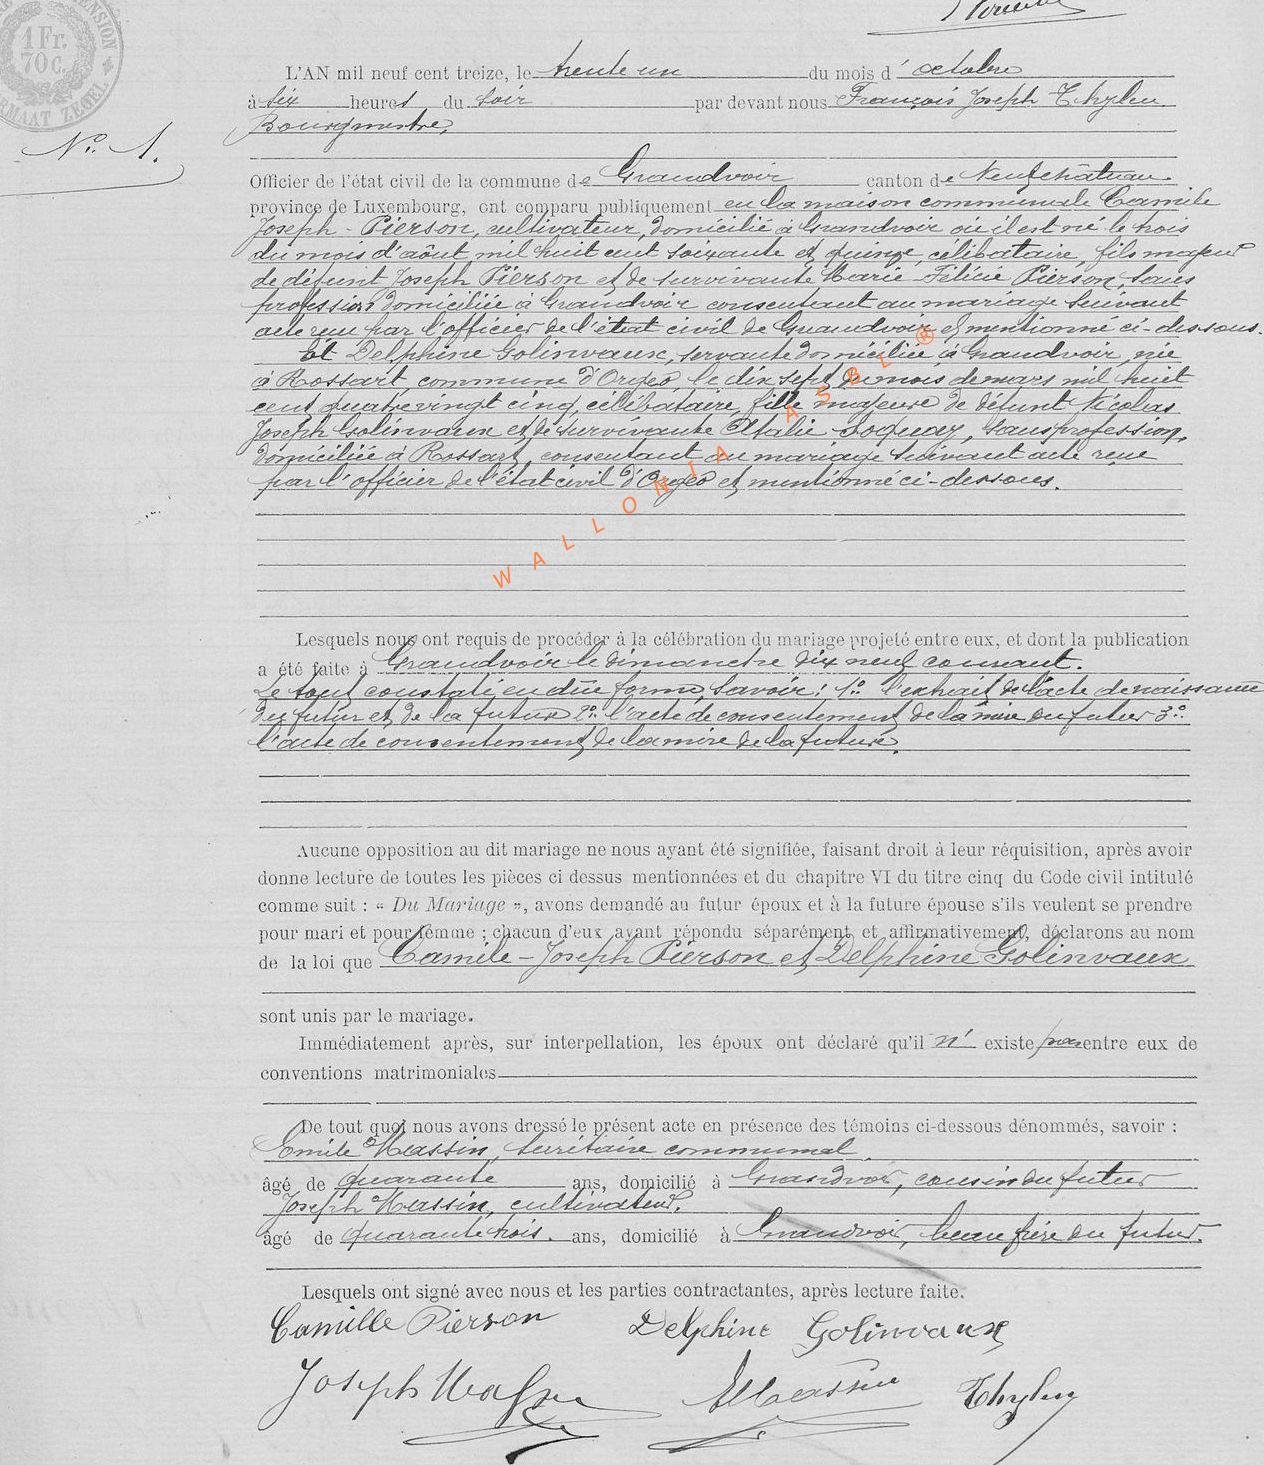 1 Fr.
70 C.
L'AN mil neuf cent treize, le trente un du mois d'octobre
à six heures du soir par devant nous François Joseph Thylen
Bourgmestre,
N° 1.
Officier de l'état civil de la commune de Grandvoir canton de Neufchâteau
province de Luxembourg, ont comparu publiquement en la maison communale Camile
Joseph - Pierson, cultivateur, domicilié à Grandvoir où il est né le trois
du mois d'août mil huit cent soixante et quinze, célibataire, fils majeur
de défunt Joseph Pierson et de survivante Marie-Félicie Pierson, sans
profession domiciliée à Grandvoir consentant au mariage suivant
acte reçu par l'officier de l'état civil de Grandvoir et mentionné ci-dessous.
Et Delphine Golinvaux, servante domiciliée à Grandvoir, née
à Rossart, commune d'Orgeo, le dix sept du mois de mars mil huit
cent quatre vingt cinq, célibataire, fille majeure de défunt Nicolas
Joseph Golinvaux et de survivante Atalie Joquay, sans profession,
domiciliée à Rossart, consentant au mariage suivant acte reçu
par l'officier de l'état civil d'Orgeo et mentionné ci-dessous.
WALLONIA ASBL ®
Lesquels nous ont requis de procéder à la célébration du mariage projeté entre eux, et dont la publication
a été faite à Grandvoir le dimanche dix neuf courant.
Le tout constaté en due forme, Savoir : 1° l'extrait de l'acte de naissance
du futur et de la future 2° l'acte de consentement de la mère du futur 3°
l'acte de consentement de la mère de la future.
Aucune opposition au dit mariage ne nous ayant été signifiée, faisant droit à leur réquisition, après avoir
donne lecture de toutes les pièces ci dessus mentionnées et du chapitre VI du titre cinq du Code civil intitulé
comme suit : « Du Mariage », avons demandé au futur époux et à la future épouse s'ils veulent se prendre
pour mari et pour femme ; chacun d'eux ayant répondu séparément et affirmativement, déclarons au nom
de la loi que Camile - Joseph Pierson et Delphine Golinvaux
sont unis par le mariage.
Immédiatement après, sur interpellation, les époux ont déclaré qu'il n' existe pas entre eux de
conventions matrimoniales
De tout quoi nous avons dressé le présent acte en présence des témoins ci-dessous dénommés, savoir :
Emile Massin, secrétaire communal.
âgé de quarante ans, domicilié à Grandvoir, cousin du futur
Joseph Massin, cultivateur.
âgé de quarante trois. ans, domicilié à Grandvoir, beau frère du futur.
Lesquels ont signé avec nous et les parties contractantes, après lecture faite.
Camille Pierson Delphine Golinvaux
Joseph Massin EMassin Thylen